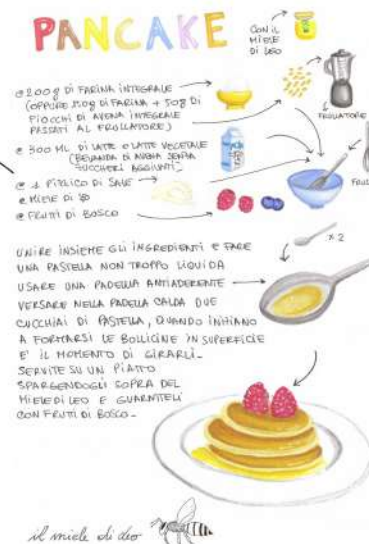 PANCAKE
CON IL
MIELE
DI LEO
200g DI FARINA INTEGRALE
(OPPURE 150g DI FARINA + 50g DI
FIOCCHI DI AVENA INTEGRALE
PASSATI AL FRULLATORE)
FRULLATORE
300 ML DI LATTE O LATTE VEGETALE
(BEVANDA DI AVENA SENZA
ZUCCHERI AGGIUNTI)
1 PIZZICO DI SALE
FRU
MIELE DI
FRUTTI DI BOSCO
x 2
UNIRE INSIEME GLI INGREDIENTI E FARE
UNA PASTELLA NON TROPPO LIQUIDA
USARE UNA PADELLA ANTIADERENTE
VERSARE NELLA PADELLA CALDA DUE
CUCCHIAI DI PASTELLA, QUANDO INIZIANO
A FORMARSI LE BOLLICINE IN SUPERFICIE
E' IL MOMENTO DI GIRARLI_
SERVITE SU UN PIATTO
SPARGENDOGLI SOPRA DEL
MIELE DI LEO E GUARNITELI
CON FRUTTI DI BOSCO_
il miele di leo